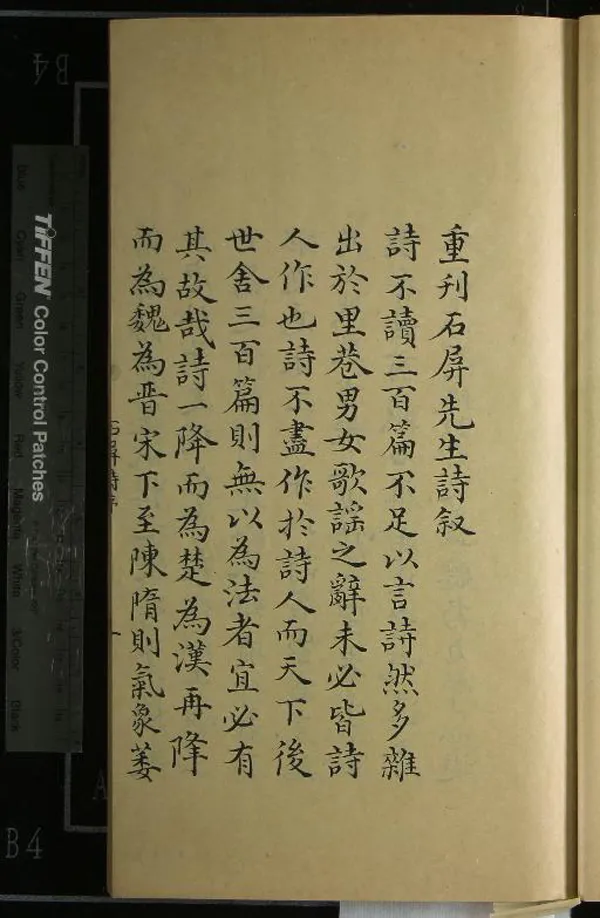 重刊石屏先生詩叙
詩不讀三百篇不足以言詩然多雜
出於里巷男女歌謡之辭未必皆詩
人作也詩不盡作於詩人而天下後
世舍三百篇則無以為法者宜必有
其故哉詩一降而為楚為漢再降
而為魏為晋宋下至陳隋則氣象萎
石屏詩序
一
B4
B4
A
TIFFEN Color Control Patches
Blue
Cyan
Green
Yellow
Red
Magenta
White
3/Color
Black